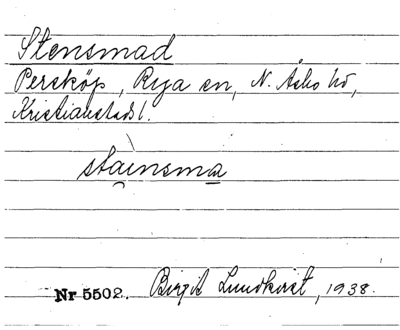 Stensmad
Persköp, Rya sn, N. Åsbo hd,
Kristianstads l.
stainsma
Nr 5502. Birgit Lundkvist, 1938.